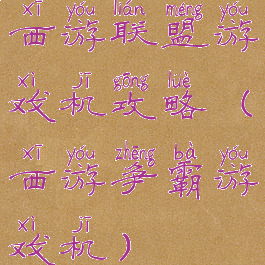 xī yóu lián méng yóu
西游联盟游
xì jī gōng lüè
戏机攻略(
xī yóu zhēng bà yóu
西游争霸游
xì jī
戏机)